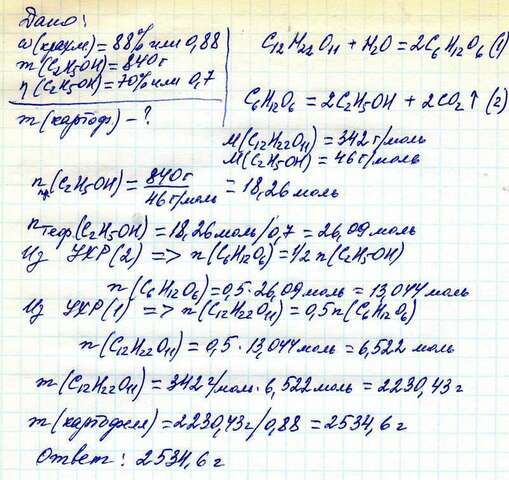 Дано:
ω(крахм.) = 88% или 0,88
m(C₂H₅OH) = 840 г
η(C₂H₅OH) = 70% или 0,7
m(картоф) - ?
C₁₂H₂₂O₁₁ + H₂O = 2C₆H₁₂O₆ (1)
C₆H₁₂O₆ = 2C₂H₅OH + 2CO₂↑ (2)
M(C₁₂H₂₂O₁₁) = 342 г/моль
M(C₂H₅OH) = 46 г/моль
nпр(C₂H₅OH) = 840 г / 46 г/моль = 18,26 моль
nтеор.(C₂H₅OH) = 18,26 моль/0,7 = 26,09 моль
Из УХР(2) => n(C₆H₁₂O₆) = 1/2 n(C₂H₅OH)
n(C₆H₁₂O₆) = 0,5 · 26,09 моль = 13,044 моль
Из УХР(1) => n(C₁₂H₂₂O₁₁) = 0,5 n(C₆H₁₂O₆)
n(C₁₂H₂₂O₁₁) = 0,5 · 13,044 моль = 6,522 моль
m(C₁₂H₂₂O₁₁) = 342 г/моль · 6,522 моль = 2230,43 г
m(картофеля) = 2230,43 г/0,88 = 2534,6 г
Ответ: 2534,6 г